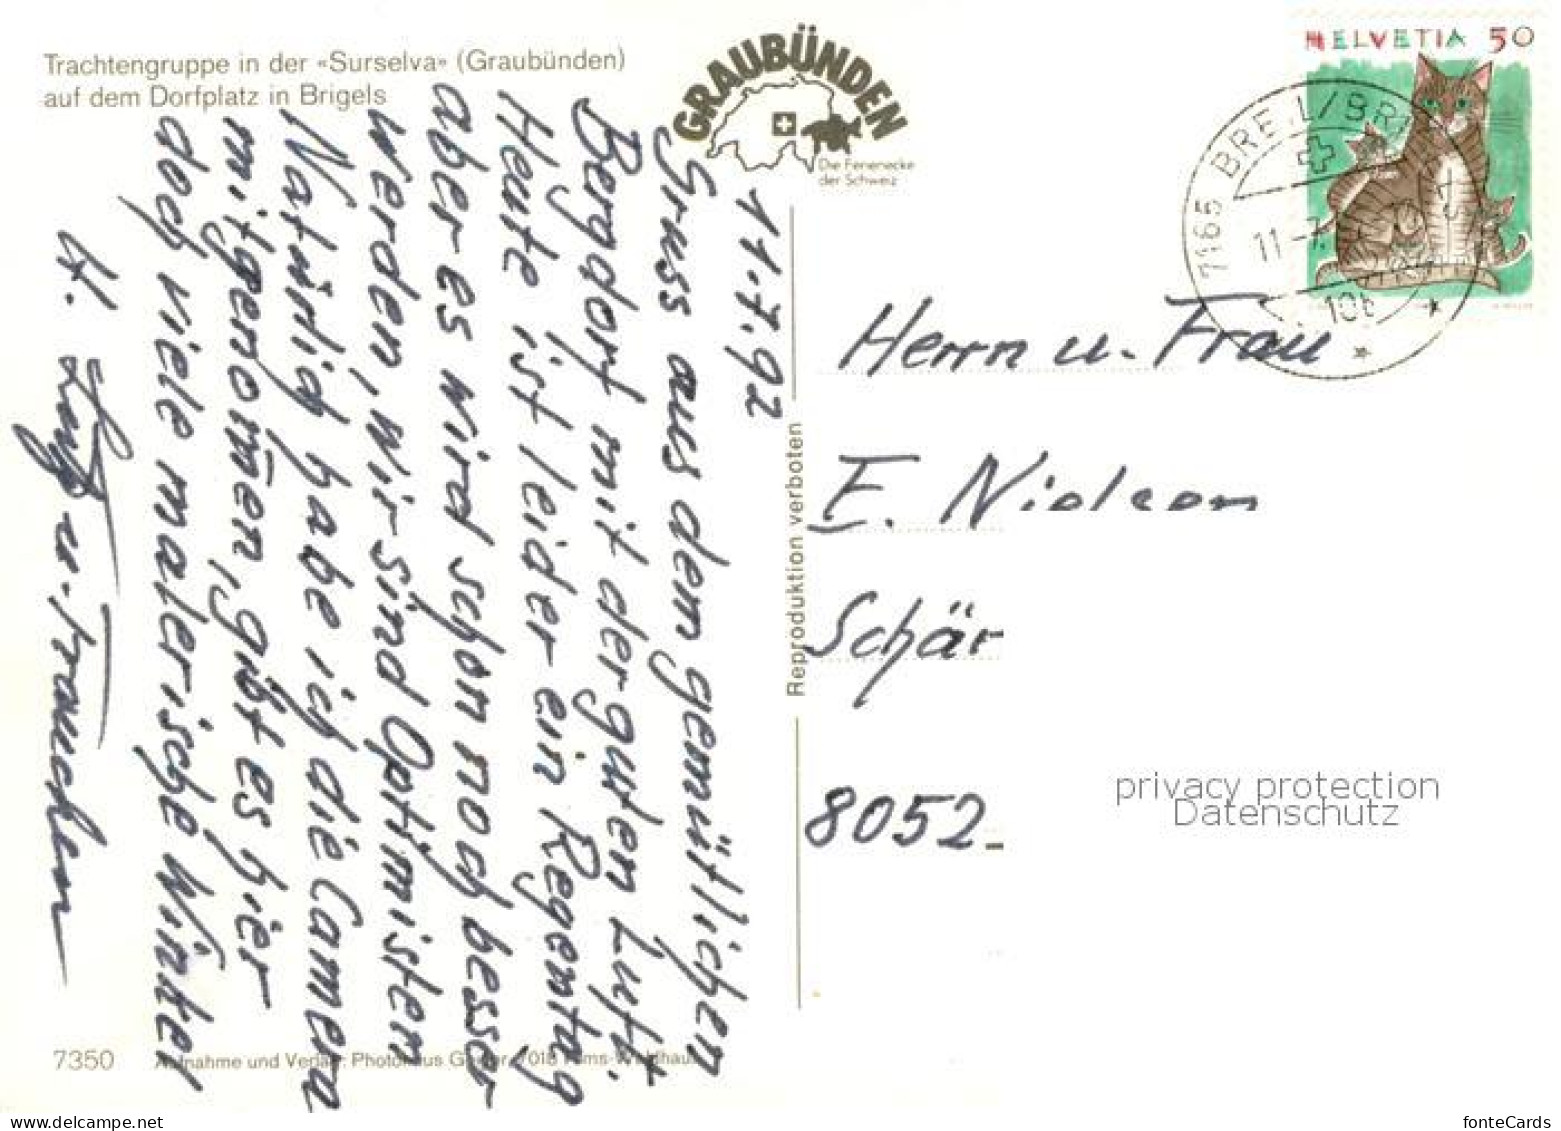 Trachtengruppe in der «Surselva» (Graubünden)
auf dem Dorfplatz in Brigels
GRAUBÜNDEN
Die Ferienecke
der Schweiz
HELVETIA 50
7165 BREIL/BRIGELS
11-7.
11.7.92
Gruss aus dem gemütlichen
Bergdorf mit der guten Luft.
Heute ist leider ein Regentag
aber es wird schon noch besser
werden, wir sind Optimisten
Natürlich habe ich die Camera
mitgenom̄en, gibt es hier
doch viele malerische Winkel
H. u. Frauchen
Reproduktion verboten
Herrn u. Frau
E. Nielsen
Schär
8052
privacy protection
Datenschutz
7350
Aufnahme und Verlag: Photohaus 7018 Flims-Waldhaus
www.delcampe.net
fonteCards